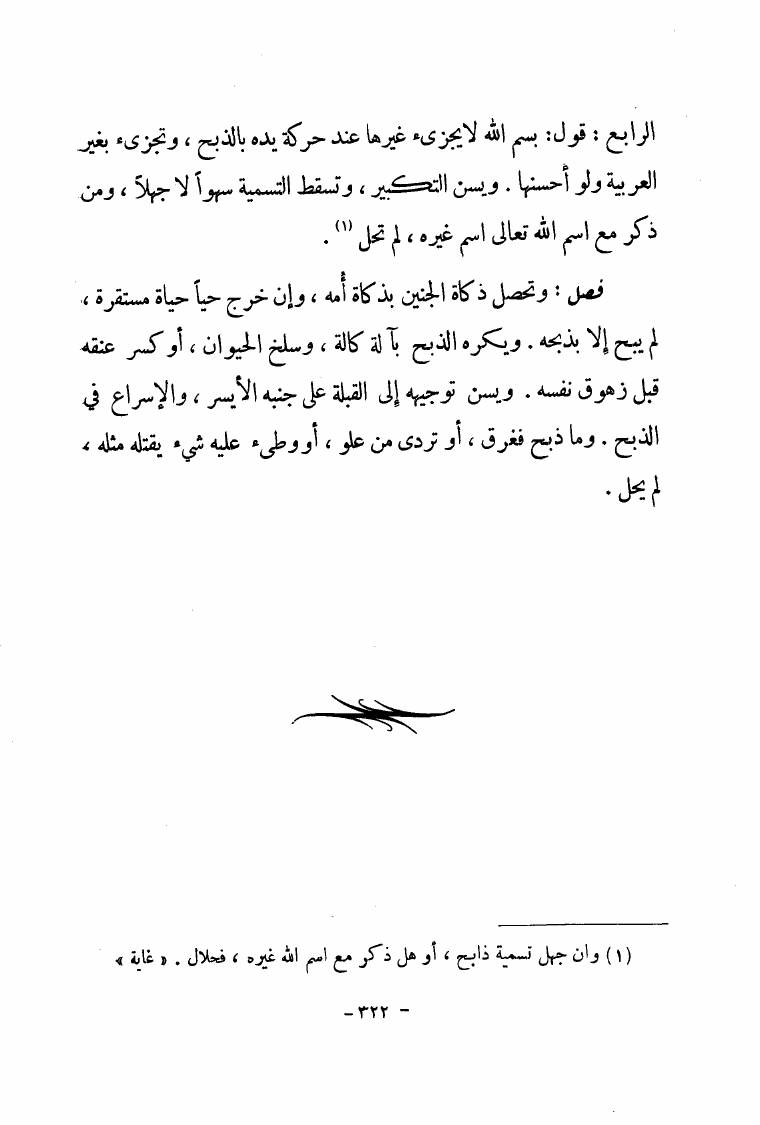 الرابع : قول: بسم الله لا يجزىء غيرها عند حركة يده بالذبح ، وتجزىء بغير
العربية ولو أحسنها . ويسن التكبير ، وتسقط التسمية سهواً لا جهلاً ، ومن
ذكر مع اسم الله تعالى اسم غيره ، لم تحل (١) .
فصل : وتحصل ذكاة الجنين بذكاة أُمه ، وإن خرج حياً حياة مستقرة ،
لم يبح إلا بذبحه . ويكره الذبح بآلة كالة ، وسلخ الحيوان ، أو كسر عنقه
قبل زهوق نفسه . ويسن توجيهه إلى القبلة على جنبه الأيسر ، والإسراع في
الذبح . وما ذبح فغرق ، أو تردى من علو ، أو وطىء عليه شيء يقتله مثله ،
لم يحل .
(١) وان جهل تسمية ذابح ، أو هل ذكر مع اسم الله غيره ، فحلال . « غاية »
– ٣٢٢ –